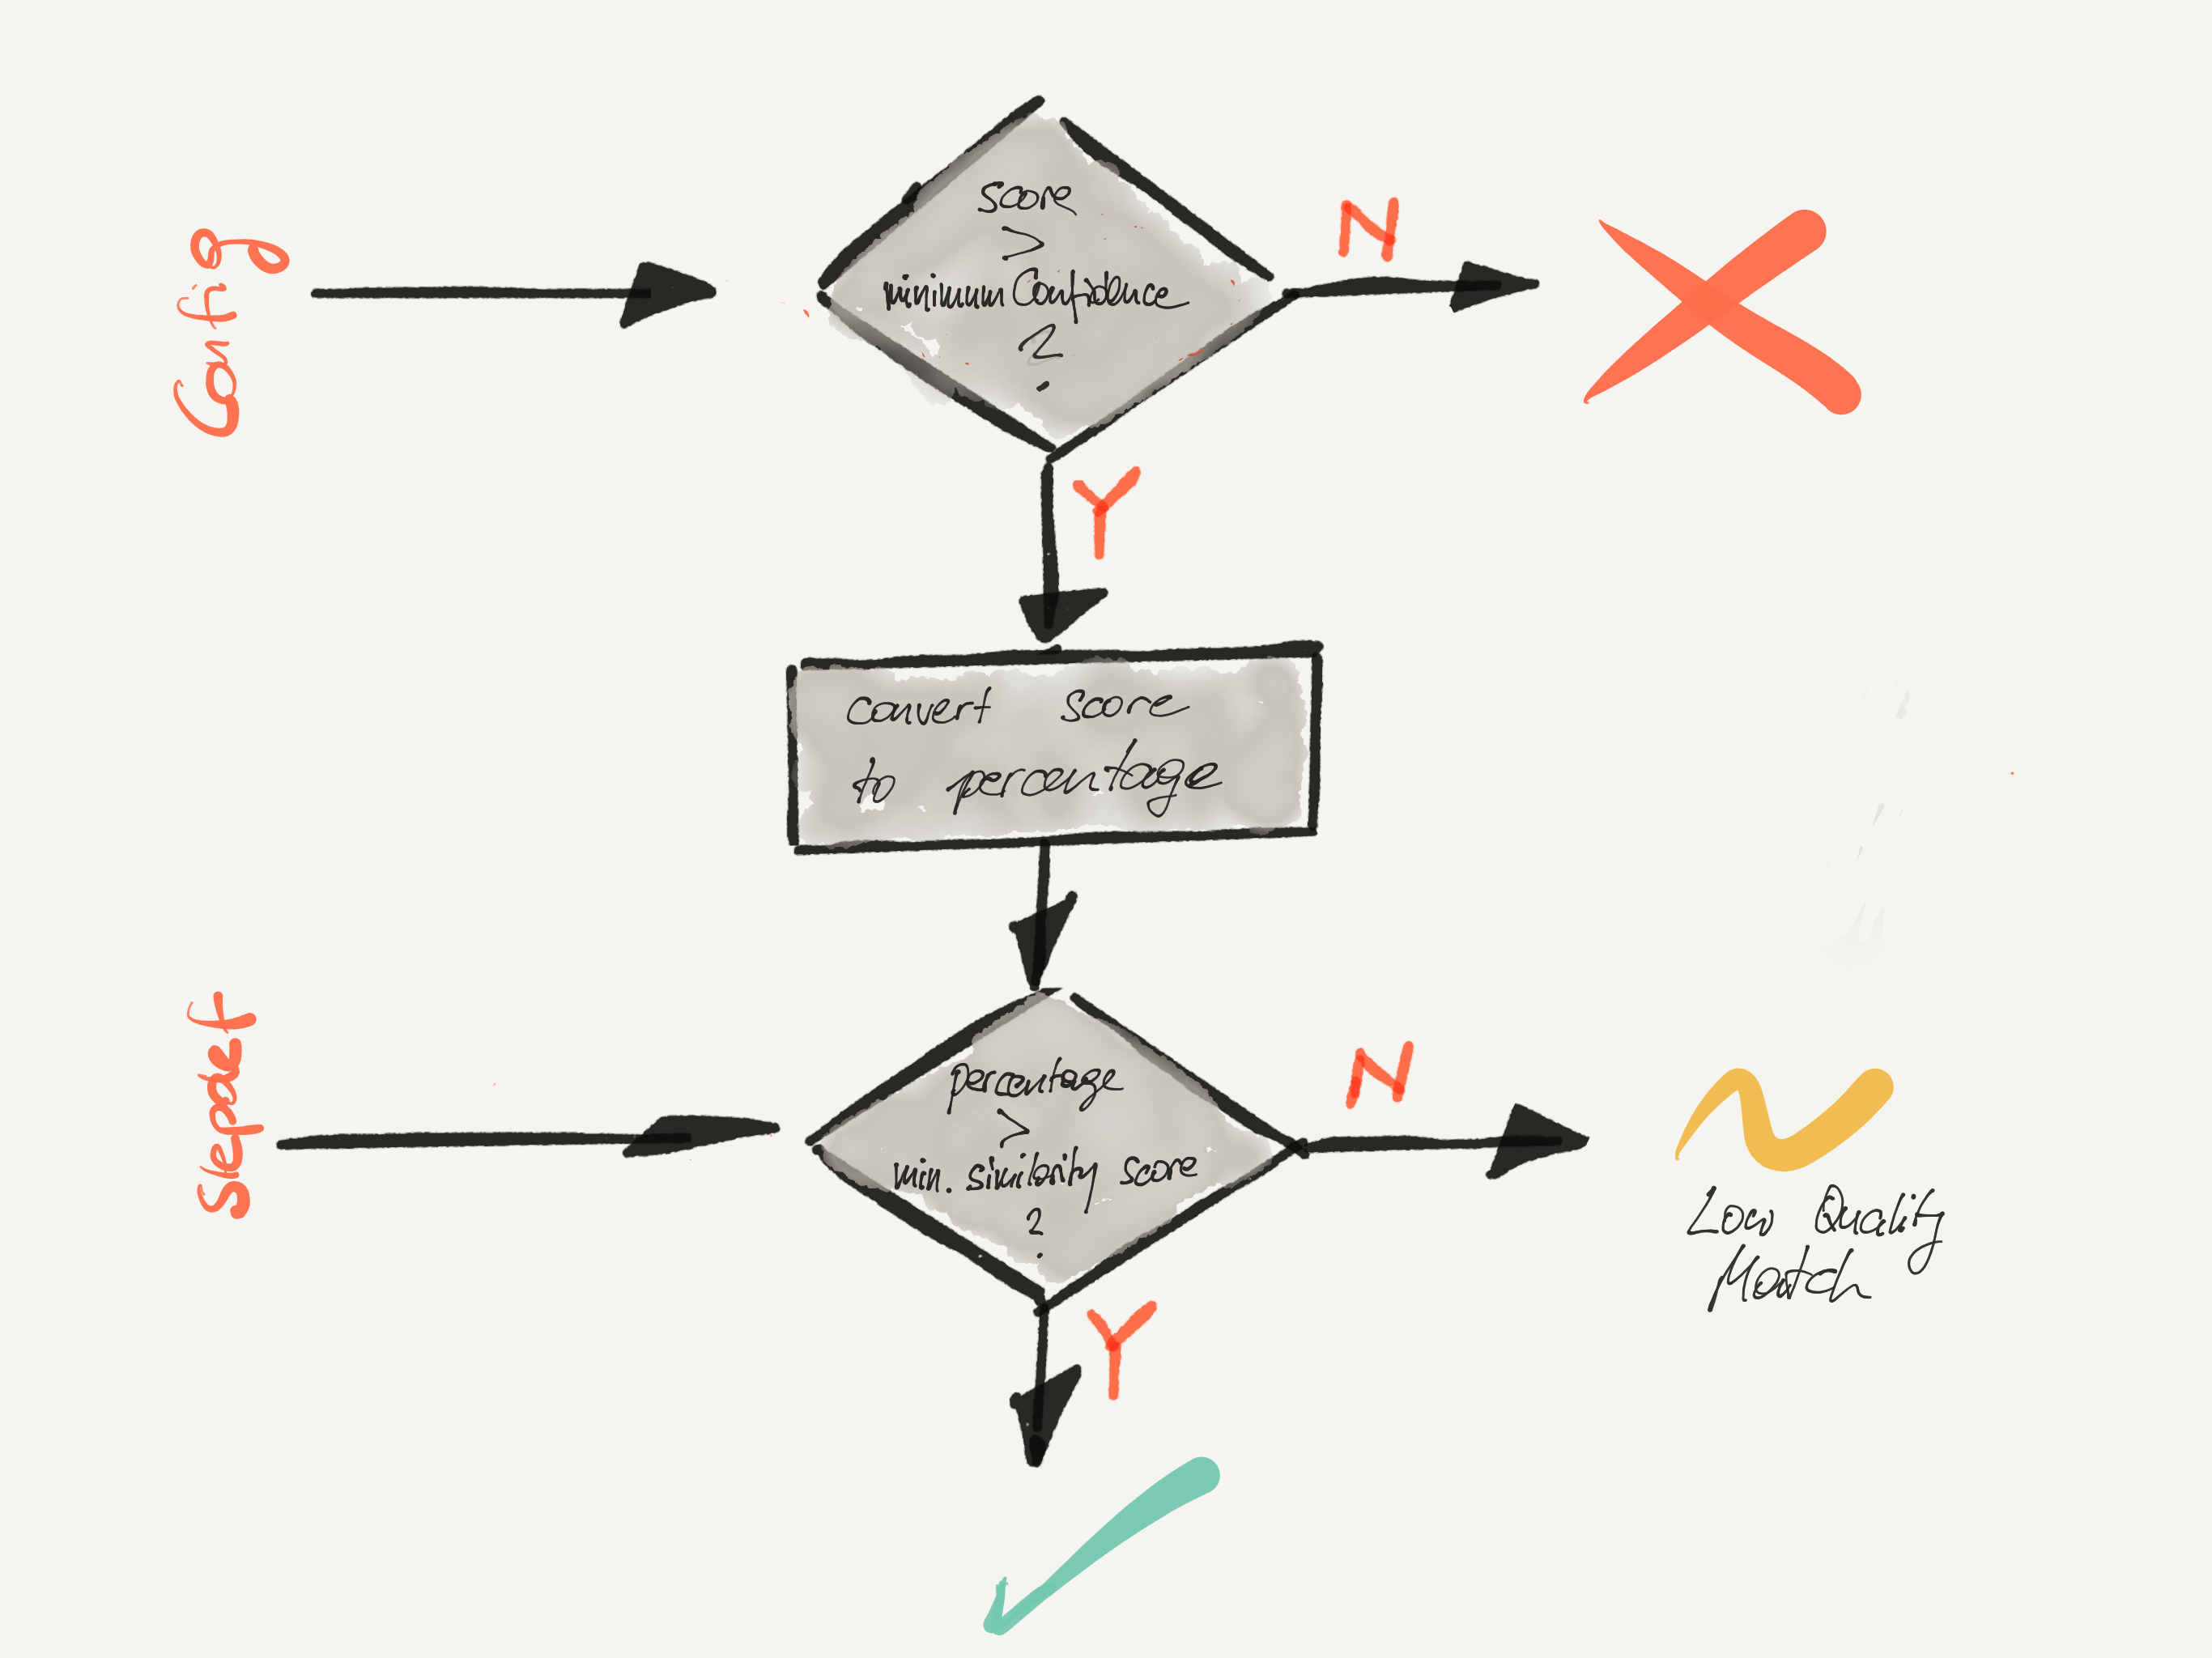 Config
score
>
minimumConfidence
?
N
Y
convert score
to percentage
percentage
>
min. similarity score
?
N
Low Quality
Match
Y